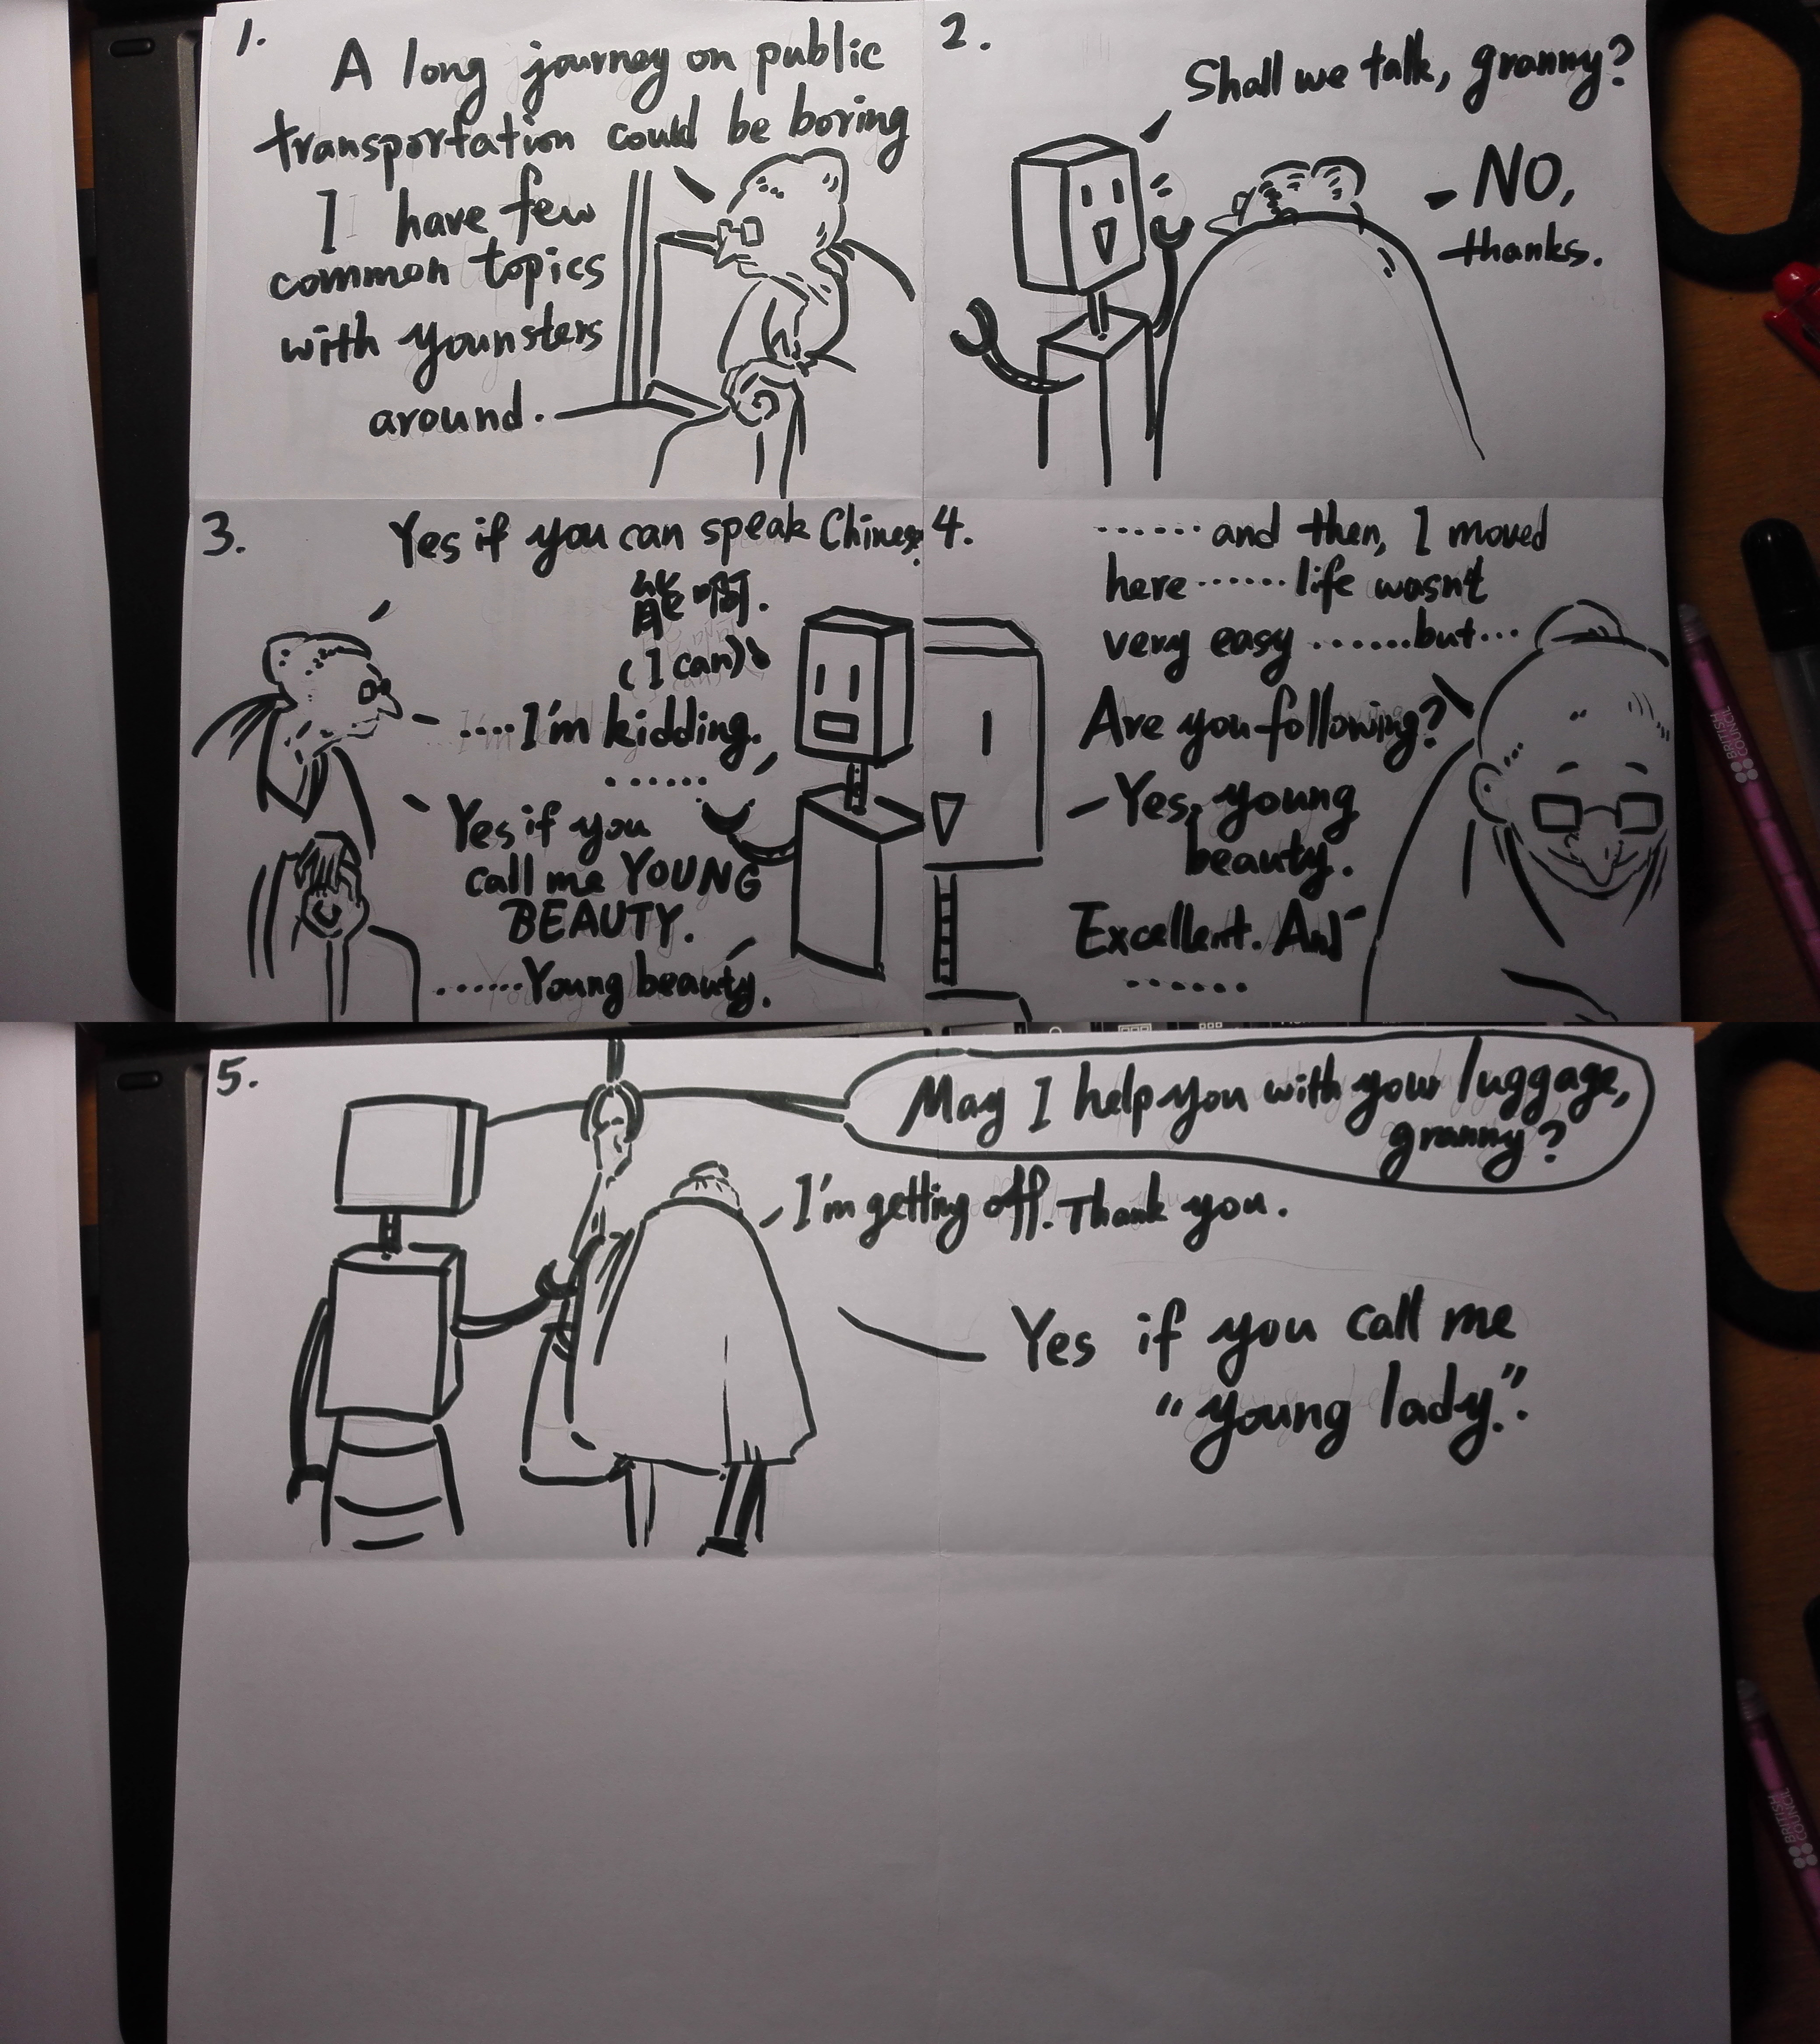 1.
A long journey on public
transportation could be boring
I have few
common topics
with younsters
around.
2.
Shall we talk, granny?
- NO,
thanks.
3.
Yes if you can speak Chinese.
能啊.
(I can)
....I'm kidding.
......
Yes if you
call me YOUNG
BEAUTY.
......Young beauty.
4.
...... and then, I moved
here ...... life wasn't
very easy .......but...
Are you following?
Yes, young
beauty.
Excellent. And
......
BRITISH
COUNCIL
5.
May I help you with your luggage,
granny?
I'm getting off. Thank you.
Yes if you call me
"young lady".
BRITISH
COUNCIL